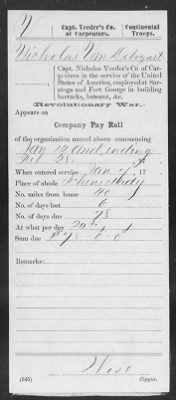 V
Capt. Veeder's Co. of Carpenters.
Continental Troops.
Nicholas Van
Capt. Nicholas Veeder's Co. of Car-
penters in the service of the United
States of America, employed at Sar-
atoga and Fort George in building
barracks, bateaux, &c.
Revolutionary War.
Appears on
Company Pay Roll
of the organization named above commencing
Jan 12 and ending
When entered service Jan 17
Place of abode
No. miles from home 40
No. of days lost
No. of days due
At what per day
Sum due
Remarks:
(545)
Copyist.